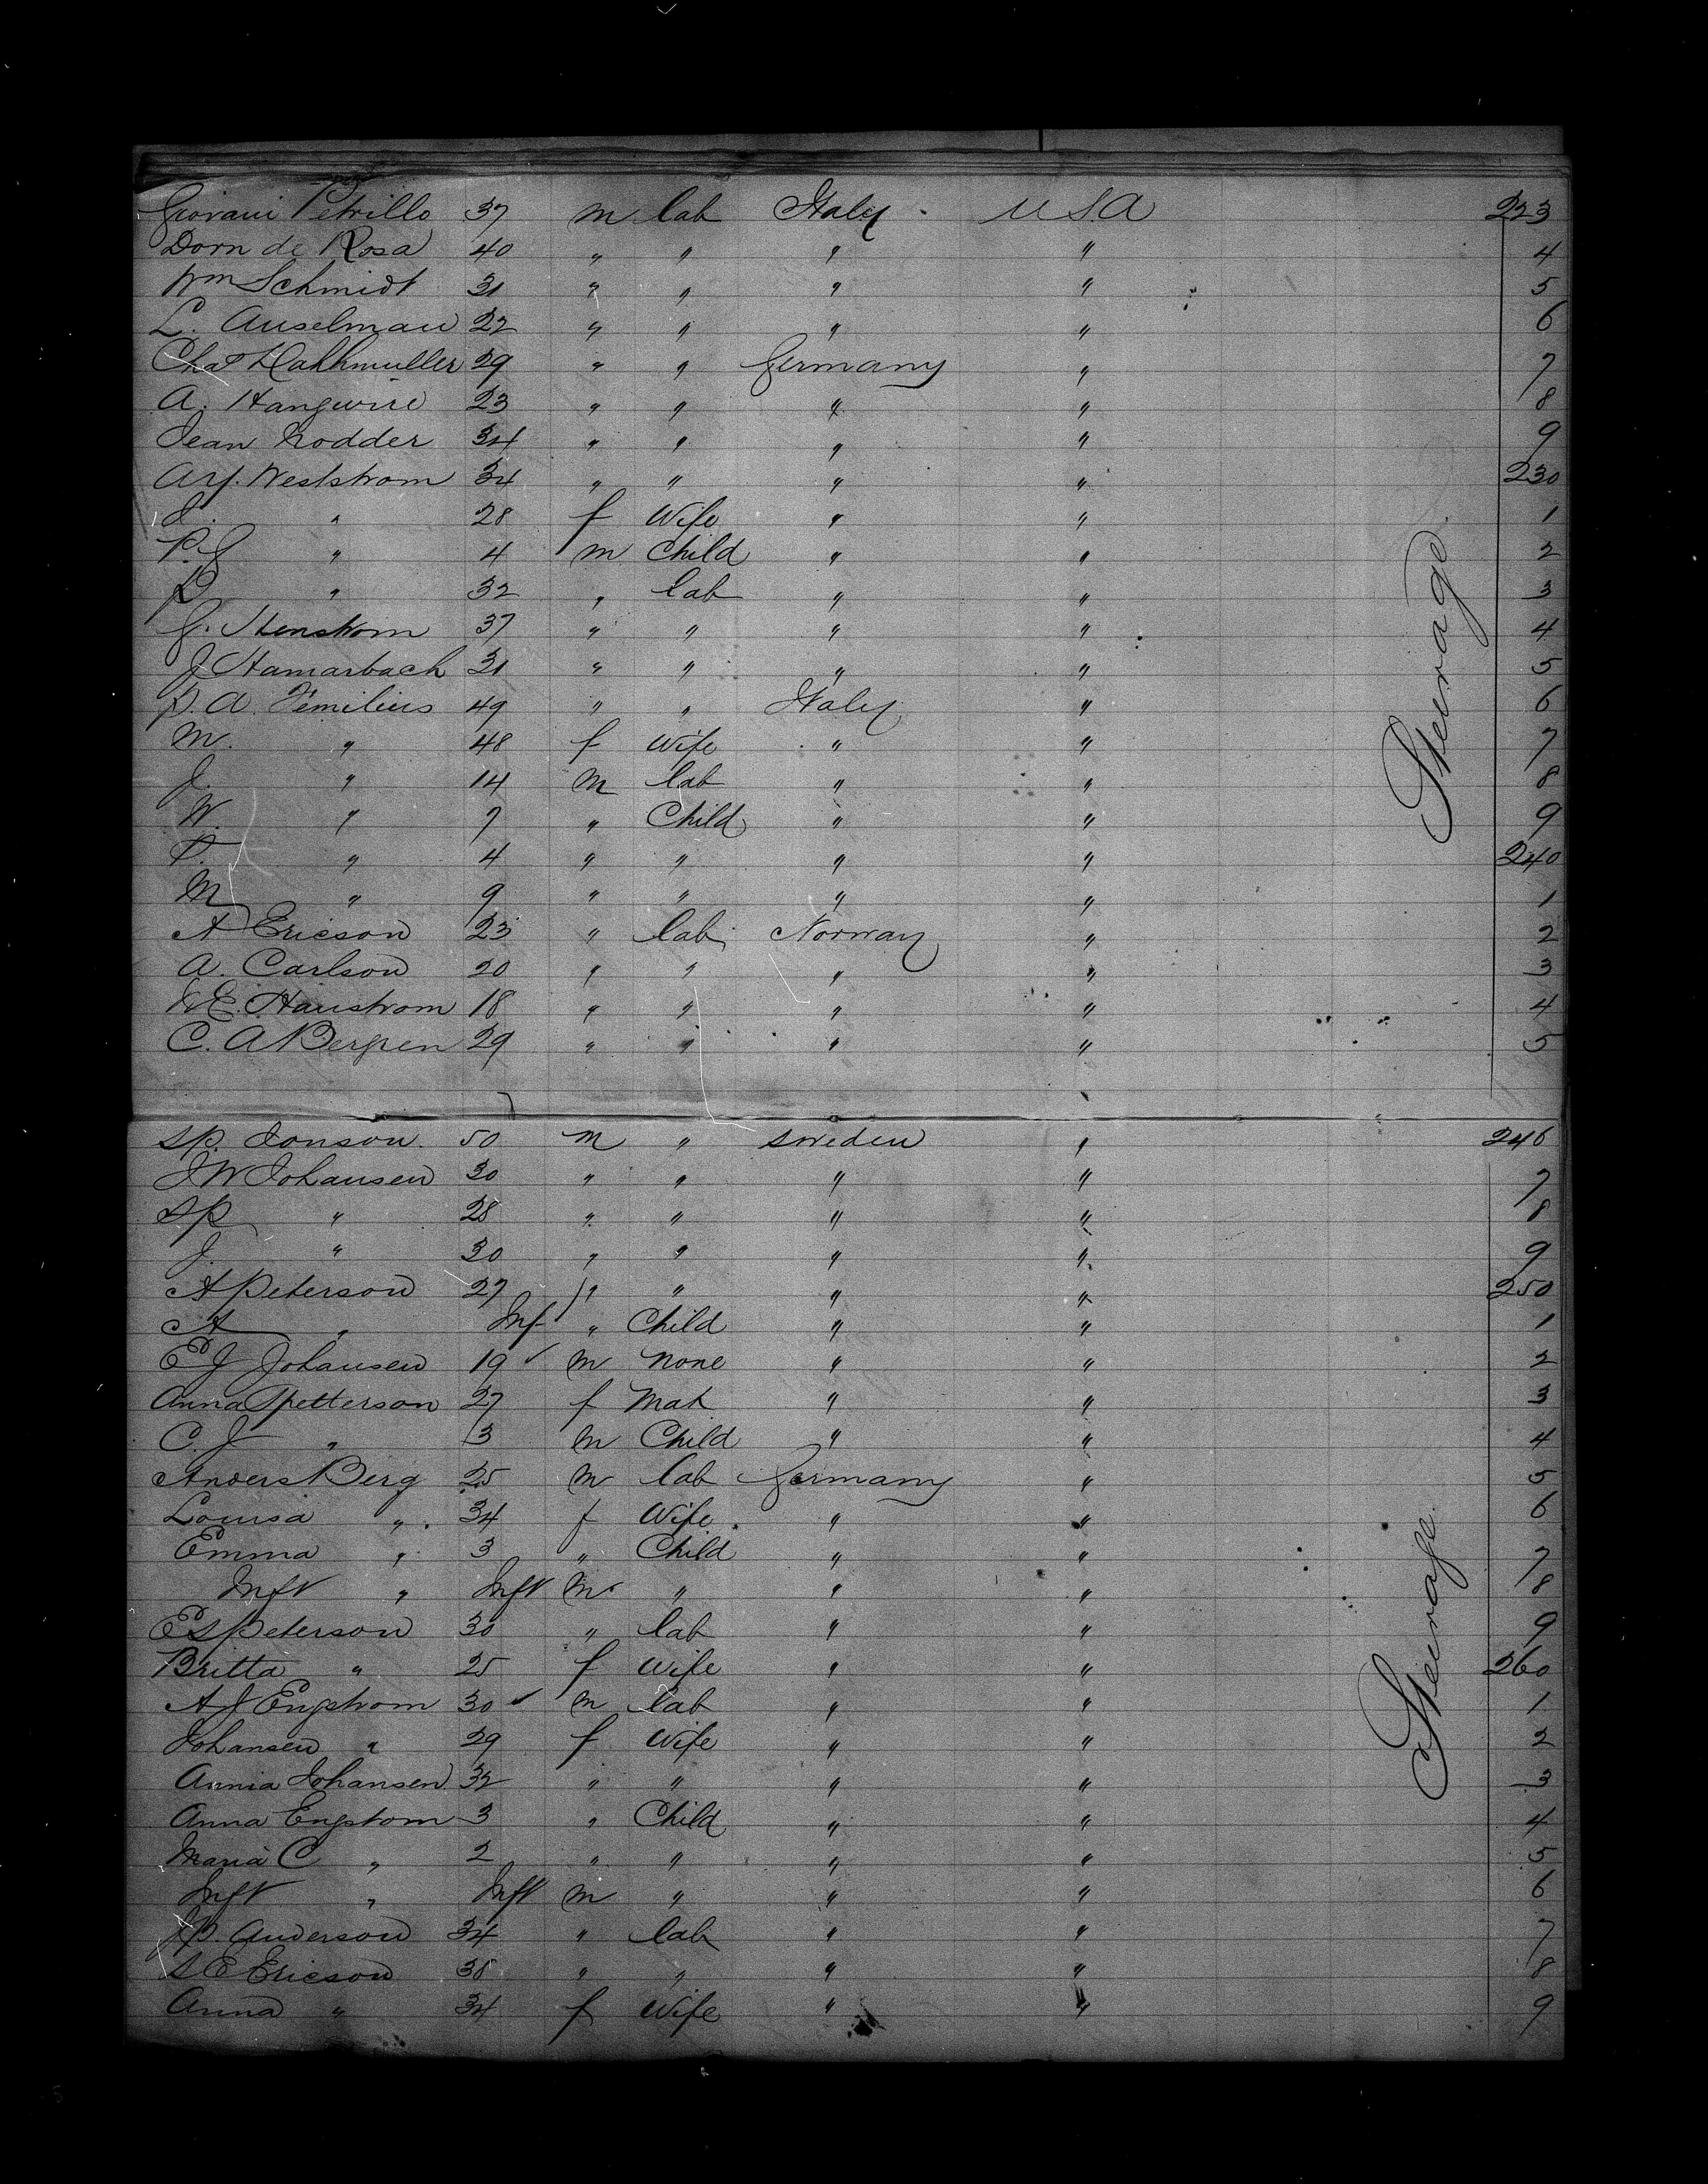 Giovani Petrillo 37 m lab Italy USA 223
Dom de Rosa 40 " " " " 4
Wm Schmidt 31 " " " " 5
L. Auselman 22 " " " " 6
Chas 29 " " Germany " 7
A. Hangwire 23 " " " " 8
Jean Nodder 34 " " " " 9
Weststrom 34 " " " " 230
" 28 f Wife " " 1
P. G " 4 m Child " " 2
" 32 " lab " " 3
G. Stenstrom 37 " " " " 4
J Hamarbach 31 " " " " 5
P. A. Temilius 49 " " Italy " 6
M. " 48 f Wife " " 7
J. " 14 m lab " " 8
W. " 7 " Child " " 9
P. " 4 " " " " 240
M " 9 " " " " 1
A Ericson 23 " lab Norway " 2
A. Carlson 20 " " " " 3
Haustrom 18 " " " " 4
C. A Bergren 29 " " " " 5
Steerage
S P. Jonson. 50 m " Sweden " 246
J W Johansen 30 " " " " 7
S P " 28 " " " " 8
J. " 30 " " " " 9
A Peterson 27 " " " " 250
A " Inf " Child " " 1
E J Johansen 19 m none " " 2
Anna Petterson 27 f Mat " " 3
C. J " 3 m Child " " 4
Anders Berg 25 m lab Germany " 5
Louisa " 34 f Wife " " 6
Emma " 3 " Child " " 7
Inft " Inft m " " " 8
E S Peterson 30 " lab " " 9
Britta " 25 f Wife " " 260
A J Engstrom 30 m lab " " 1
Johansen " 29 f Wife " " 2
Annia Johansen 32 " " " " 3
Anna Engstom 3 " Child " " 4
Maria C " 2 " " " " 5
Inft " Inft m " " " 6
P. Anderson 34 " lab " " 7
S E Ericson 38 " " " " 8
Anna " 34 f Wife " " 9
Steerage